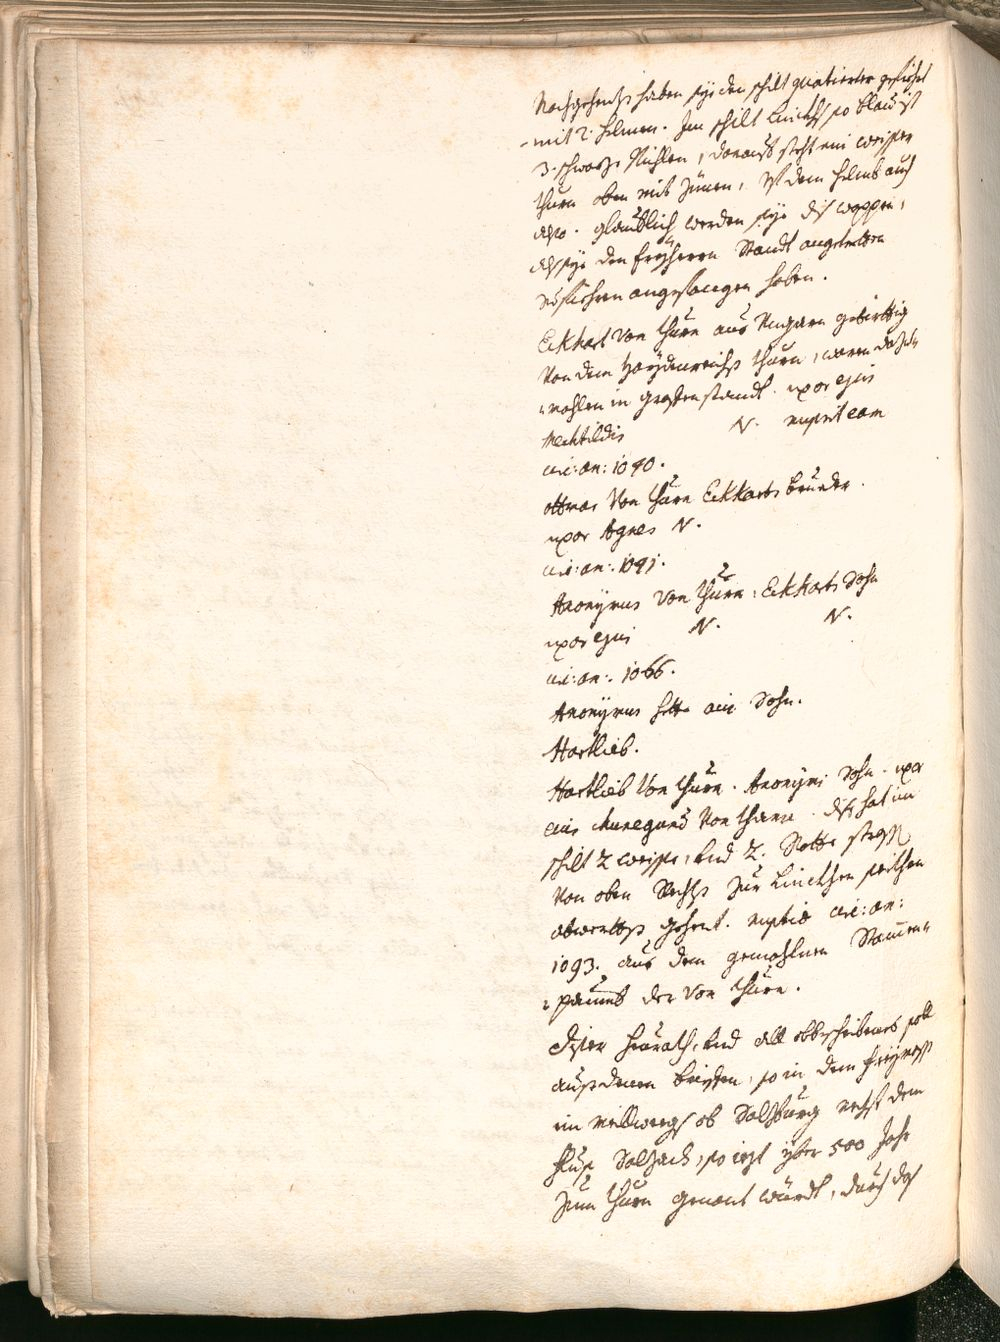 Nachgehents haben sye den schilt quatierter gefiehrt
mit 2. helmen. Im schilt Linckhs so blau ist
3. schwarze , darauf steht ein weisser
thurn oben mit Zinen, Auf dem helmb auch
also. glaublich werden sye dis wappen,
als sye den freyherrn Standt angetretten
zufiehren angefangen haben.
Eckhart Von thurn aus Ungarn gebirttig
Von dem thurn, waren dazu-
-mahlen in grossen standt. uxor ejus
Mechtildis N. nupsit eam
circ: an: 1090.
ottmar Von thurn Eckharts brueder.
uxor Agnes N.
circ: an: 1091.
Anonymus Von thurn, Eckharts Sohn
uxor ejus N. N.
circ: an: 1066.
Anonymus hette ain Sohn.
Hartlieb.
Hartlieb Von thurn. Anonymi Sohn. uxor
eius Kunegund Von thann. diser hat im
schilt 2 weisse, und 2. Rotte strich
Von oben Rechts zur Linckhen seithen
abwerts gehent. nuptiae circ: an:
1093. aus dem gemahlnen Stamen-
-paumb der Von thurn.
diser heurath, und all obbeschribenes soll
aus denen brieffen, so in dem
im ob Salzburg nechst dem
flus Salzach, so iezt yber 500 Jahr
zum thurn genant würdt, durch das